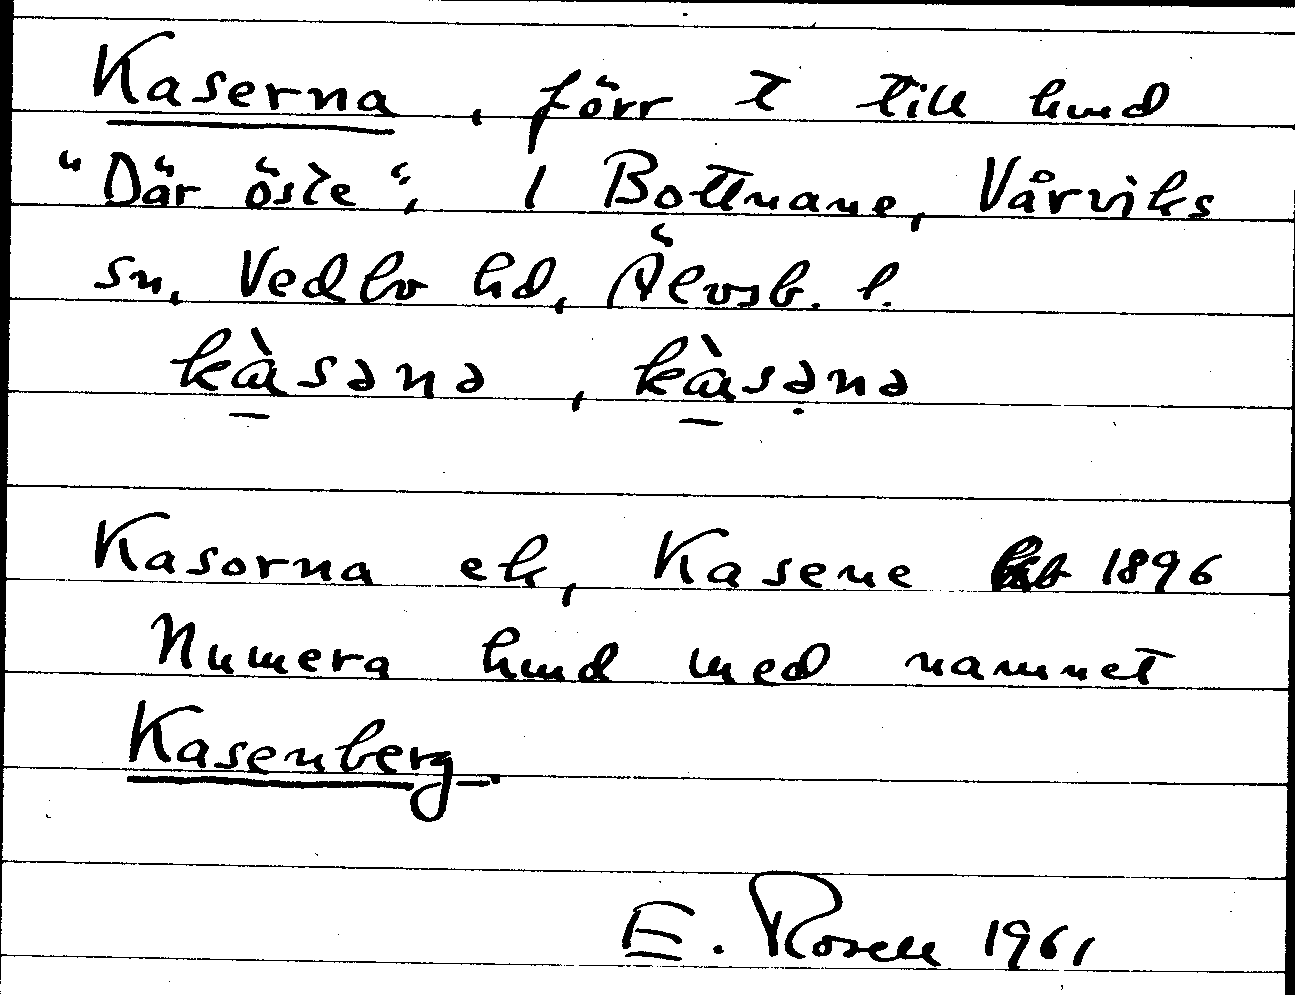 Kaserna, förr t till hmd
"Där öste", 1 Bottnane, Vårviks
sn, Vedbo hd, Älvsb. l.
kàsənə, kàsənə
Kasorna ek, Kasene 1896
Numera hmd med namnet
Kasenberg.
E. Rosell 1961